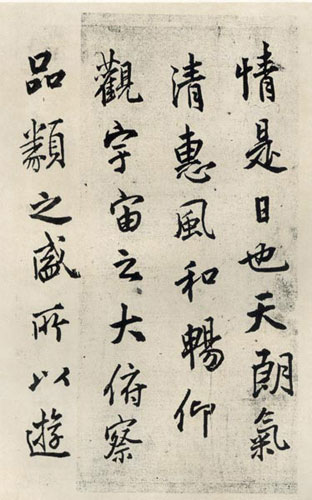 情是日也天朗氣
清惠風和暢仰
觀宇宙之大俯察
品類之盛所以遊